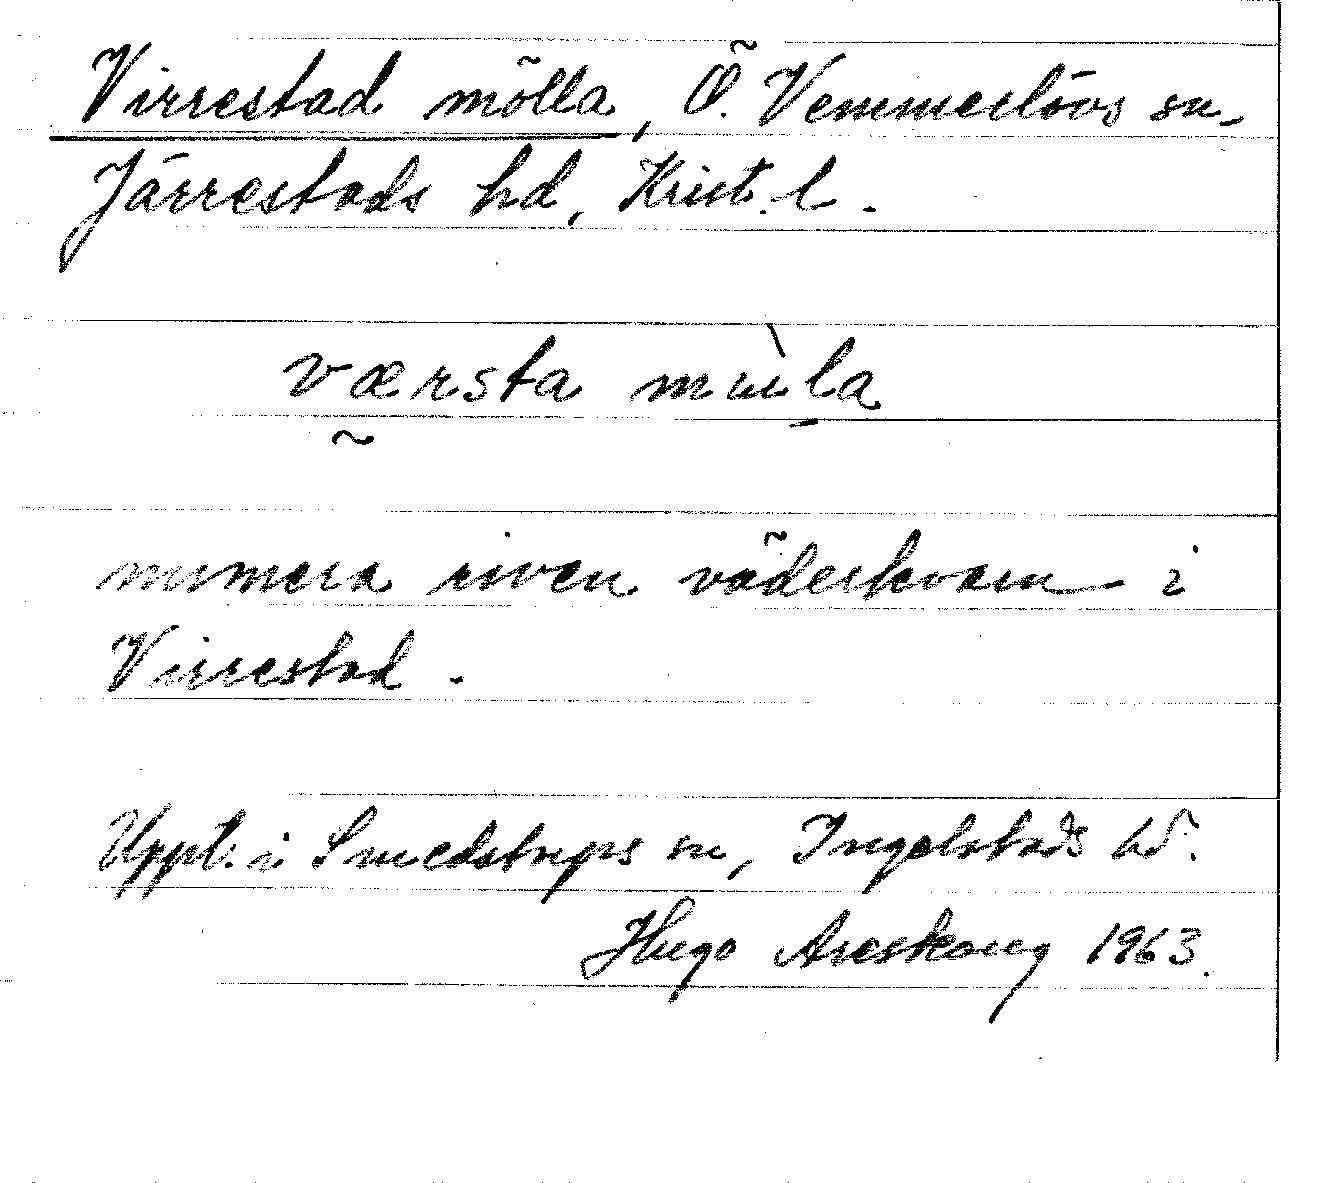 Virrestad mölla, Ö. Vemmerlövs sn.
Järrestads hd, Krist. l.
værsta mùla
numera riven väderkvarn i
Virrestad.
Uppt. i Smedstorps sn, Ingelstads hd.
Hugo Areskoug 1963.